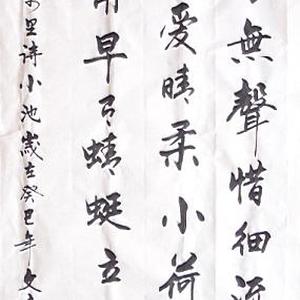 無聲惜細流
爱晴柔小荷
角早有蜻蜓立
万里诗小池歲在癸巳年文